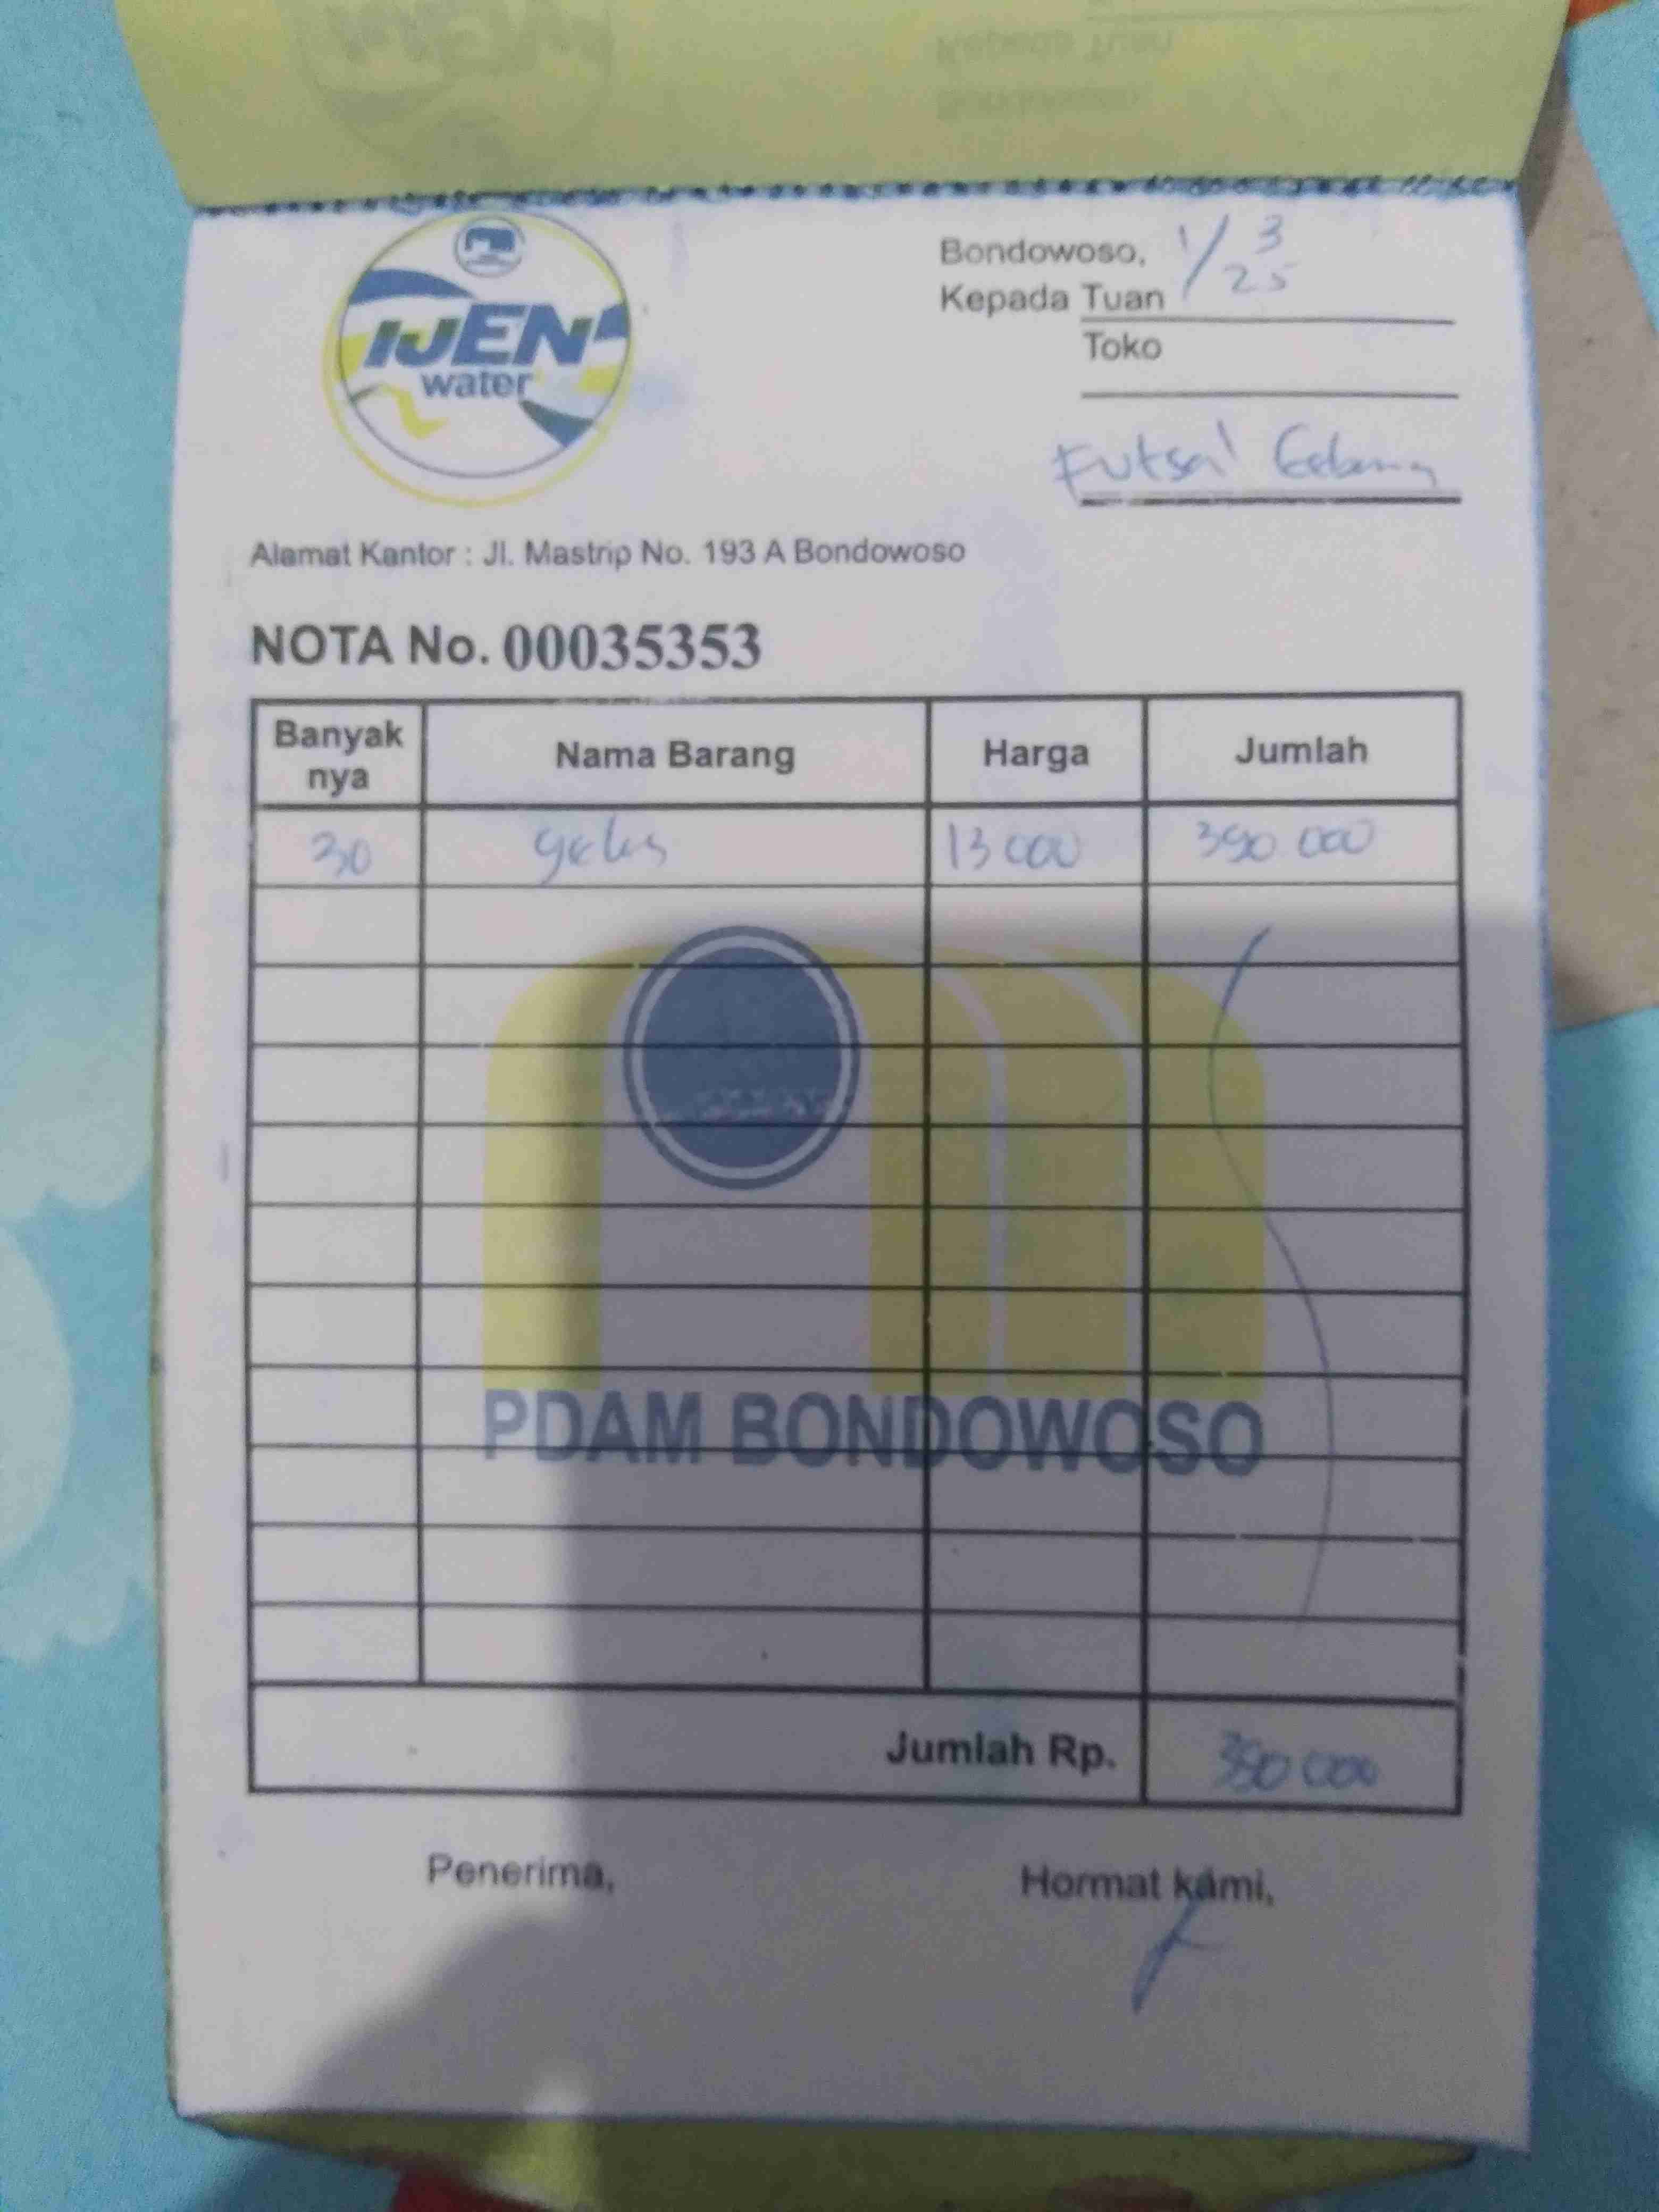 IJEN
water
Bondowoso, 1/3 25
Kepada Tuan
Toko
Futsal
Alamat Kantor : Jl. Mastrip No. 193 A Bondowoso
NOTA No. 00035353
Banyak nya Nama Barang Harga Jumlah
30 gelas 13 000 390 000
PDAM BONDOWOSO
Jumlah Rp. 390 000
Penerima, Hormat kami,